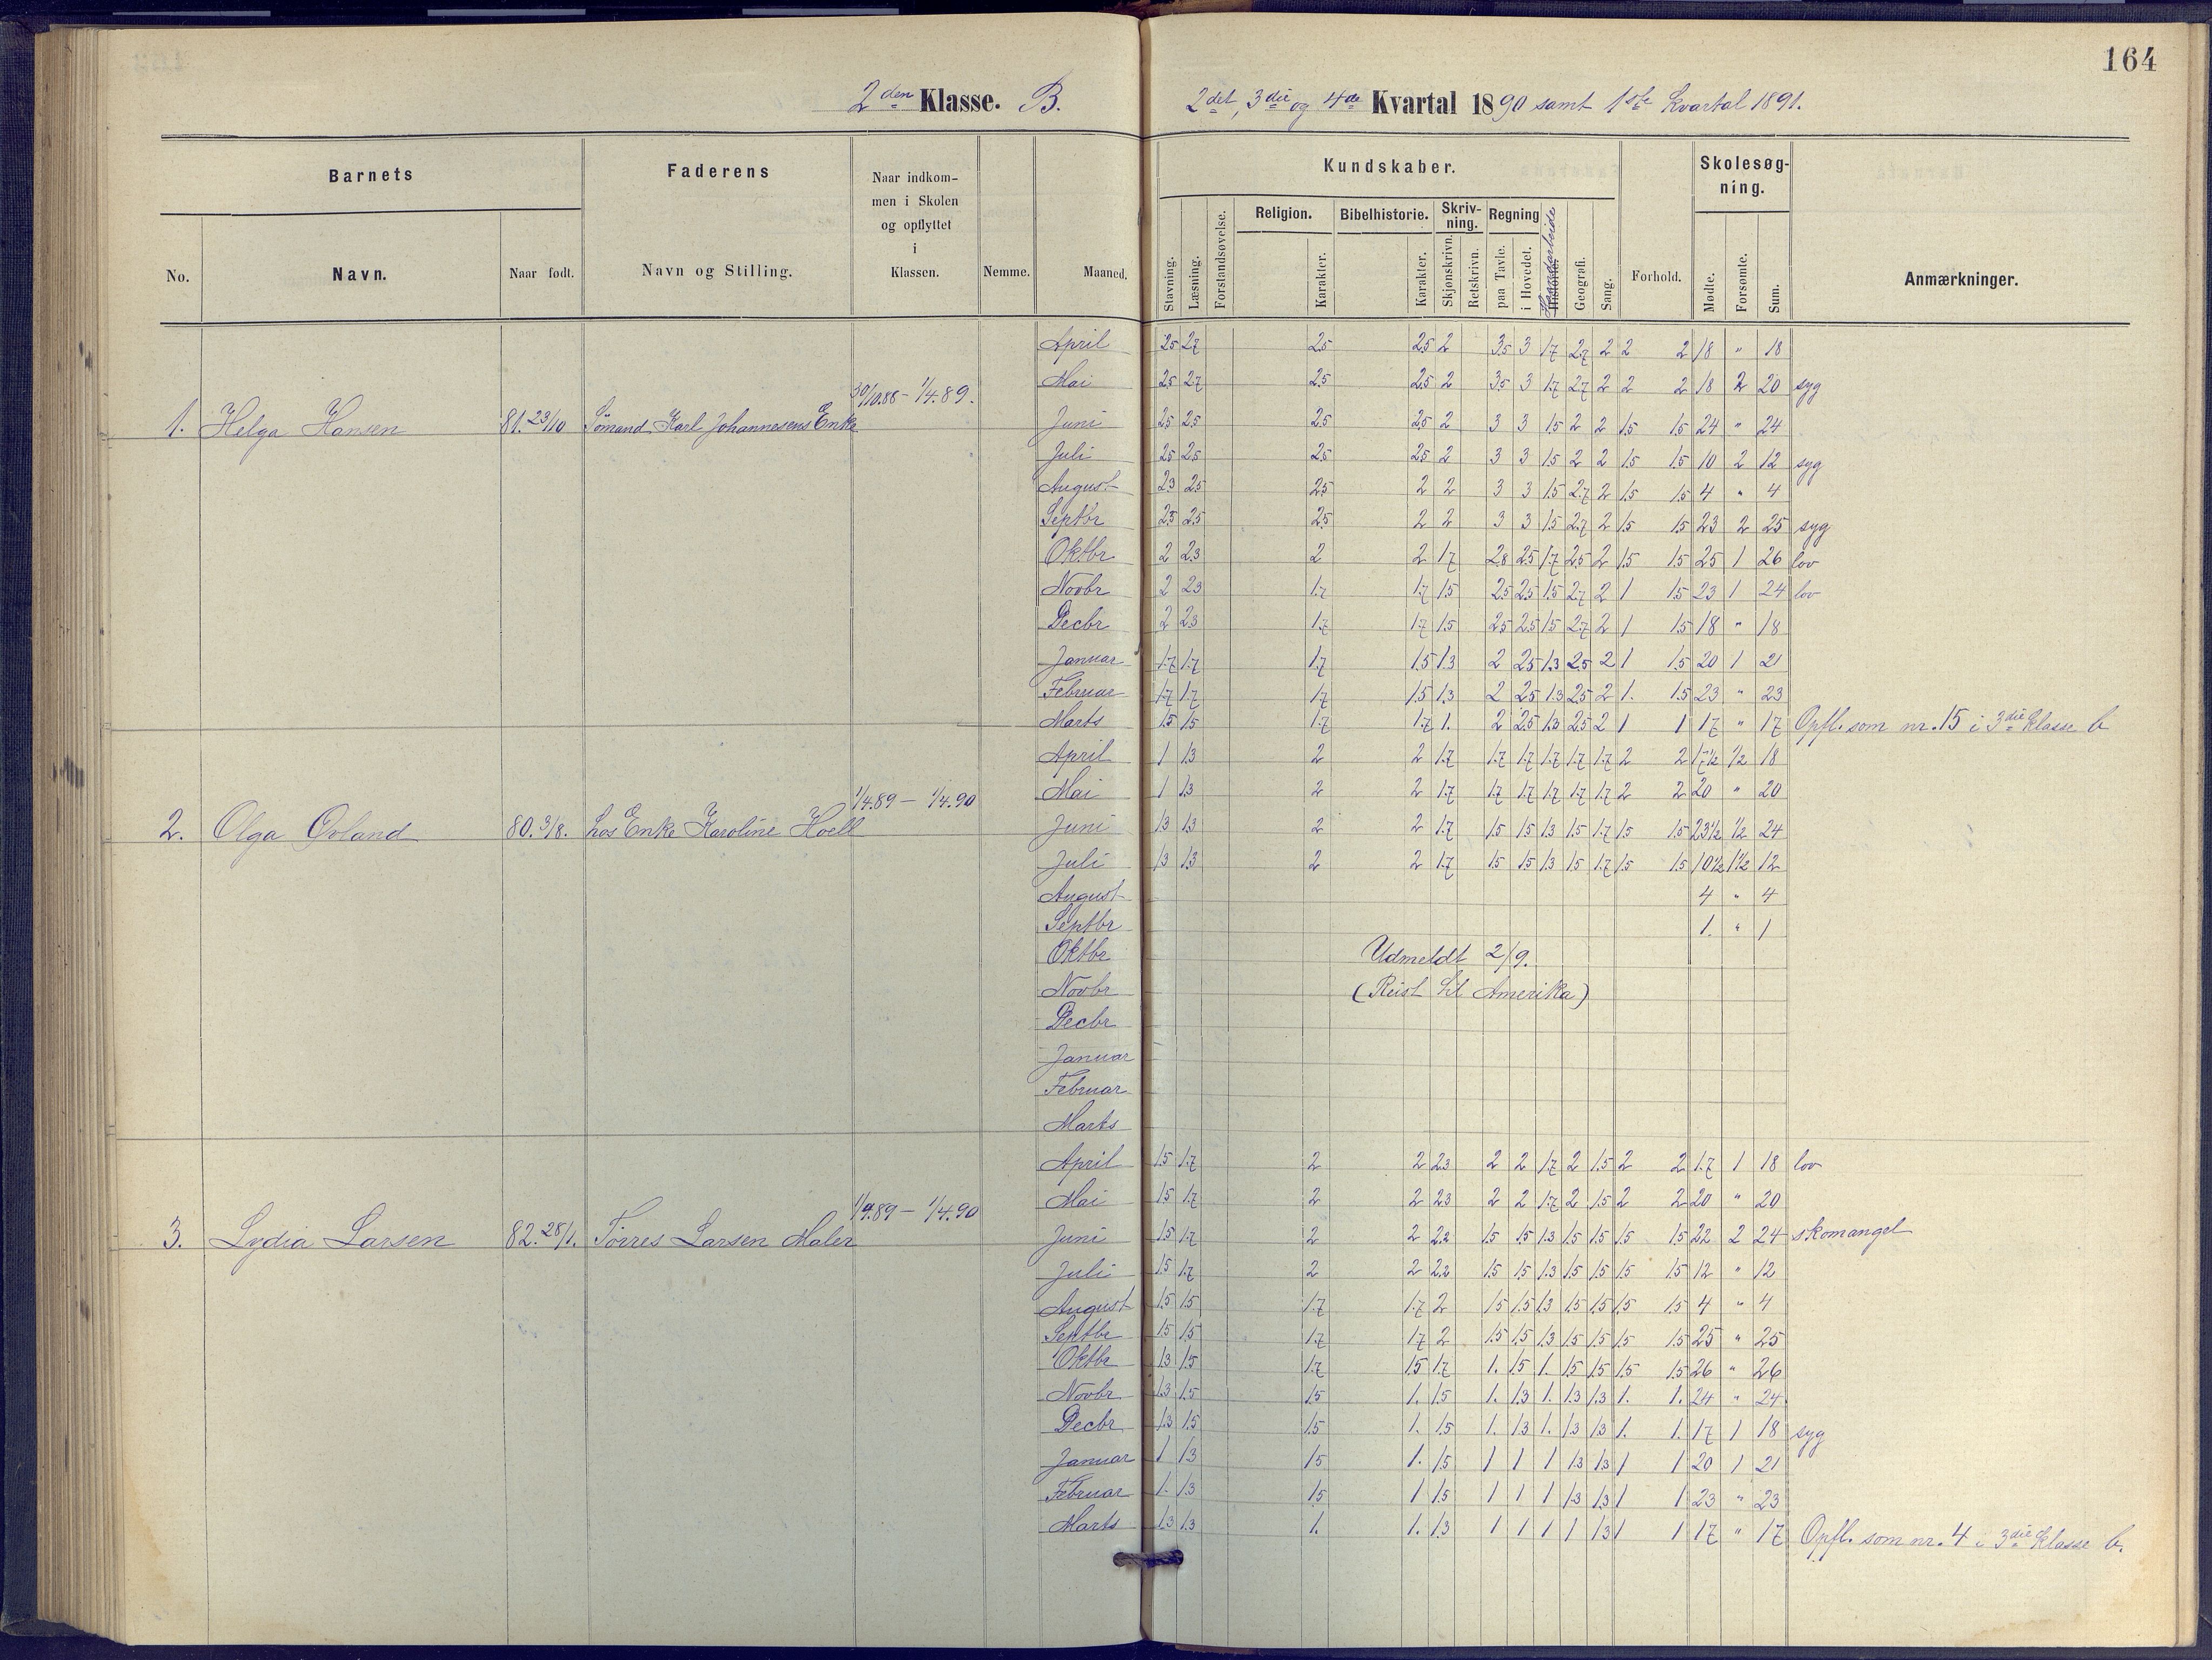 164
2den Klasse. B. 2det, 3die og 4de Kvartal 1890 samt 1ste Kvartal 1891.
Barnets Faderens Naar indkommen i Skolen og opflyttet i Klassen. Nemme. Maaned. Kundskaber. Forhold. Skolesøgning. Anmærkninger.
No. Navn. Naar født. Navn og Stilling.
Stavning. Læsning. Forstandsøvelse. Religion. Karakter. Bibelhistorie. Karakter. Skrivning. Skjønskrivn. Retskrivn. Regning paa Tavle. i Hovedet. Historie. Haandarbeide Geografi. Sang. Mødte. Forsømte. Sum.
1. Helga Hansen 81.23/10 Sömand Karl Johannesens Enke 30/10.88 - 1/4.89.
April 2.5 2.7 2.5 2.5 2 3.5 3 1.7 2.7 2 2 2 18 " 18
Mai 2.5 2.7 2.5 2.5 2 3.5 3 1.7 2.7 2 2 2 18 2 20 syg
Juni 2.5 2.5 2.5 2.5 2 3 3 1.5 2 2 1.5 1.5 24 " 24
Juli 2.5 2.5 2.5 2.5 2 3 3 1.5 2 2 1.5 1.5 10 2 12 syg
August 2.3 2.5 2.5 2 2 3 3 1.5 2.7 2 1.5 1.5 4 " 4
Septbr 2.3 2.5 2.5 2 2 3 3 1.5 2.7 2 1.5 1.5 23 2 25 syg
Oktbr 2 2.3 2 2 1.7 2.8 2.5 1.7 2.5 2 1.5 1.5 25 1 26 lov
Novbr 2 2.3 1.7 1.7 1.5 2.5 2.5 1.5 2.7 2 1 1.5 23 1 24 lov
Decbr 2 2.3 1.7 1.7 1.5 2.5 2.5 1.5 2.7 2 1 1.5 18 " 18
Januar 1.7 1.7 1.7 1.5 1.3 2 2.5 1.3 2.5 2 1 1.5 20 1 21
Februar 1.7 1.7 1.7 1.5 1.3 2 2.5 1.3 2.5 2 1. 1.5 23 " 23
Marts 1.5 1.5 1.7 1.7 1. 2 2.5 1.3 2.5 2 1 1 17 " 17 Opfl. som nr. 15 i 3die Klasse b
2. Olga Ovland 80.3/8. Los Enke Karoline Hoell 1/4.89 - 1/4.90
April 1 1.3 2 2 1.7 1.7 1.7 1.7 1.7 1.7 2 2 17½ ½ 18
Mai 1 1.3 2 2 1.7 1.7 1.7 1.7 1.7 1.7 2 2 20 " 20
Juni 1.3 1.3 2 2 1.7 1.5 1.5 1.3 1.5 1.7 1.5 1.5 23½ ½ 24
Juli 1.3 1.3 2 2 1.7 1.5 1.5 1.3 1.5 1.7 1.5 1.5 10½ 1½ 12
August 4 " 4
Septbr 1. " 1
Oktbr Udmeldt 2/9.
Novbr (Reist til Amerika)
Decbr
Januar
Februar
Marts
3. Lydia Larsen 82.28/1. Törres Larsen Maler 1/4.89 - 1/4.90
April 1.5 1.7 2 2 2.3 2 2 1.7 2 1.5 2 2 17 1 18 lov
Mai 1.5 1.7 2 2 2.3 2 2 1.7 2 1.5 2 2 20 " 20
Juni 1.5 1.7 2 2 2.2 1.5 1.5 1.3 1.5 1.5 1.5 1.5 22 2 24 skomangel
Juli 1.5 1.7 2 2 2.2 1.5 1.5 1.3 1.5 1.5 1.5 1.5 12 " 12
August 1.5 1.5 1.7 1.7 2 1.5 1.5 1.3 1.5 1.5 1.5 1.5 4 " 4
Septbr 1.5 1.5 1.7 1.7 2 1.5 1.5 1.3 1.5 1.5 1.5 1.5 25 " 25
Oktbr 1.3 1.5 1.7 1.5 1.7 1. 1.5 1. 1.5 1.5 1.5 1.5 26 " 26
Novbr 1.3 1.5 1.5 1. 1.5 1. 1.3 1. 1.3 1.3 1. 1. 24 " 24
Decbr 1.3 1.5 1.5 1. 1.5 1. 1.3 1. 1.3 1.3 1. 1. 17 1 18 syg
Januar 1 1.3 1.5 1. 1.5 1 1 1 1.3 1.3 1 1 20 1 21
Februar 1. 1.3 1.5 1 1.5 1 1 1 1.3 1.3 1 1 23 " 23
Marts 1.3 1.3 1. 1. 1.3 1 1 1 1 1.3 1 1 17 " 17 Opfl. som nr. 4 i 3die Klasse b.